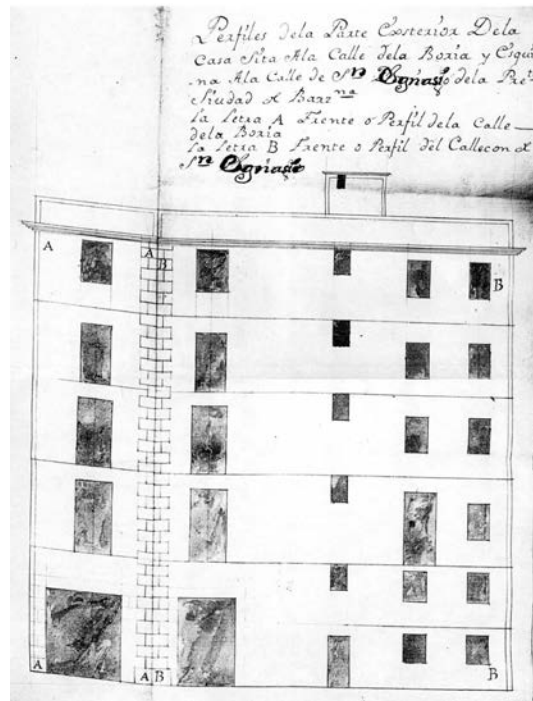 Perfiles dela Parte Exsterior Dela
Casa Sita Ala Calle dela Boria y Esqui
na Ala Calle de Sn Ygnasio dela Pre.
Siudad d Barzna
La Letra A Frente o Perfil dela Calle
dela Boria
La Letra B Frente o Perfil del Callecon d
Sn Ygnasio
A A B B
A A B B